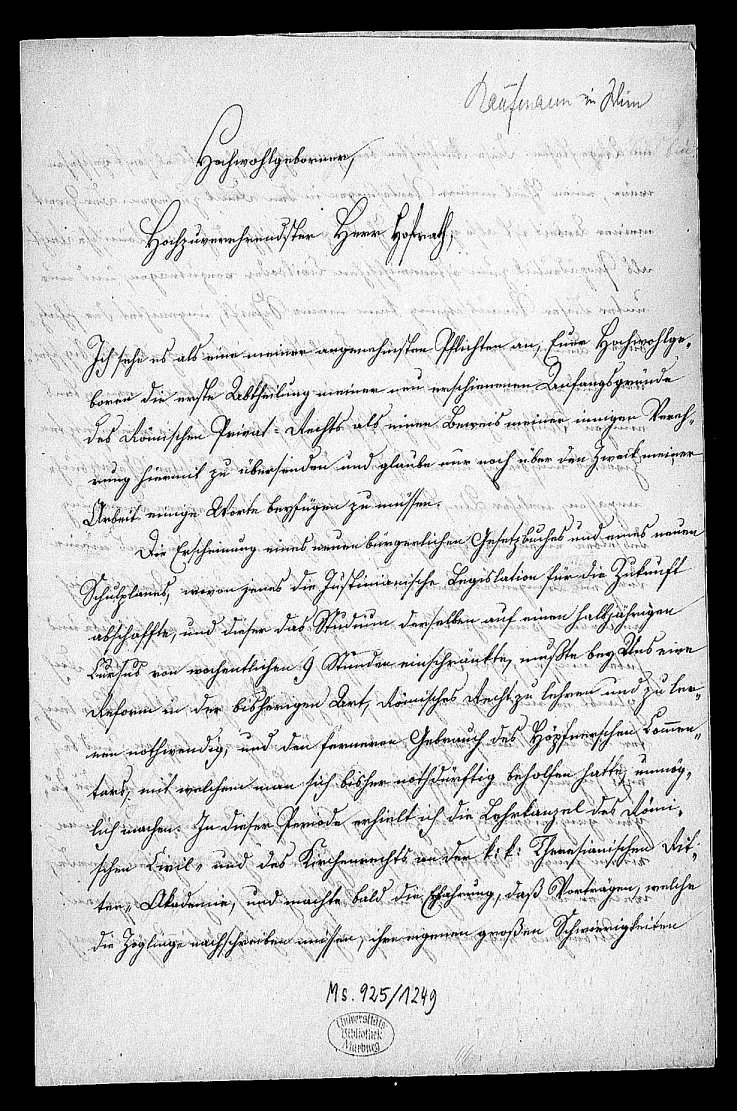 Kaufmann in Wien
Hochwohlgeborner,
Hochzuverehrendster Herr Hofrath,
Ich sehe es als eine meiner angenehmsten Pflichten an, Euer Hochwohlge-
boren die erste Abtheilung meiner neu erschienenen Anfangsgründe
des Römischen Privat-Rechts als einen Beweis meiner innigen Vereh-
rung hiermit zu übersenden und glaube nur noch über den Zweck meiner
Arbeit einige Worte beyfügen zu müssen.
Die Erscheinung eines neuen bürgerlichen Gesetzbuches und eines neuen
Schulplanes, wovon jenes die Justinianische Legislation für die Zukunft
abschaffte, und dieser das Studium derselben auf einen halbjährigen
Cursus von wochentlichen 9 Stunden einschränkte, mußte bey Uns eine
Reform in der bisherigen Art, Römisches Recht zu lehren und zu ler-
nen nothwendig, und den ferneren Gebrauch des Höpfnerschen Commen-
tars, mit welchem man sich bisher nothdürftig beholfen hatte, unmög-
lich machen. In dieser Periode erhielt ich die Lehrkanzel des Römi-
schen Civil- und des Kirchenrechts an der k: k: Theresianischen Rit-
ter-Akademie, und machte bald die Erfahrung, daß Vorträgen, welche
die Zöglinge nachschreiben müssen, ihre eigenen großen Schwierigkeiten
Ms. 925/1249
Universitäts
Bibliothek
Marburg